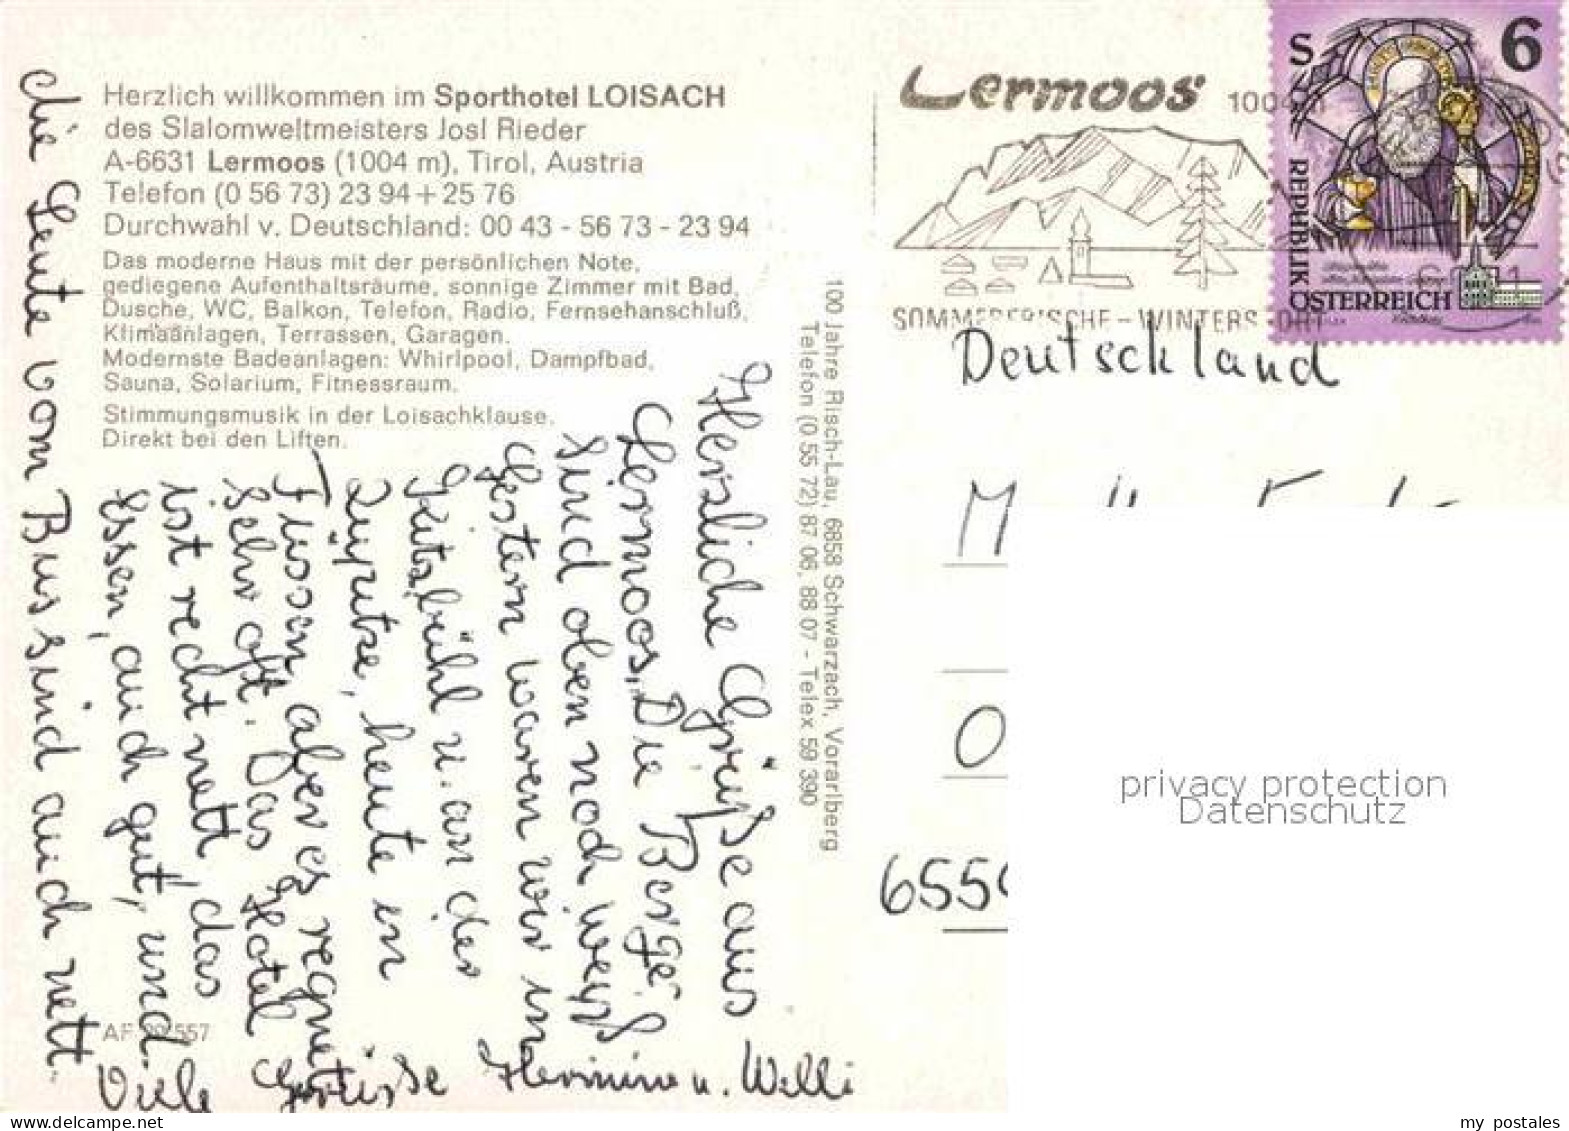 Herzlich willkommen im Sporthotel LOISACH
des Slalomweltmeisters Josl Rieder
A-6631 Lermoos (1004 m), Tirol, Austria
Telefon (0 56 73) 23 94 + 25 76
Durchwahl v. Deutschland: 00 43 - 56 73 - 23 94
Das moderne Haus mit der persönlichen Note,
gediegene Aufenthaltsräume, sonnige Zimmer mit Bad,
Dusche, WC, Balkon, Telefon, Radio, Fernsehanschluß,
Klimaanlagen, Terrassen, Garagen.
Modernste Badeanlagen: Whirlpool, Dampfbad,
Sauna, Solarium, Fitnessraum.
Stimmungsmusik in der Loisachklause.
Direkt bei den Liften.
Herzliche Grüße aus
Lermoos, Die Berge
sind oben noch weiß
Gestern waren wir in
Kitzbühl u. an der
heute in
Füssen, aber es regnet
sehr oft. Das Hotel
ist recht nett das
Essen, auch gut, und
die Leute vom Bus sind auch nett.
Viele Grüsse Hermine u. Willi
AF 557
100 Jahre Risch-Lau, 6858 Schwarzach, Vorarlberg
Telefon (0 55 72) 87 06, 88 07 - Telex 59 390
Lermoos 1004 m
SOMMERFRISCHE - WINTERSPORT
S 6
REPUBLIK
ÖSTERREICH
Deutschland
M
O
655
privacy protection
Datenschutz
AllPostcards.com
my postales